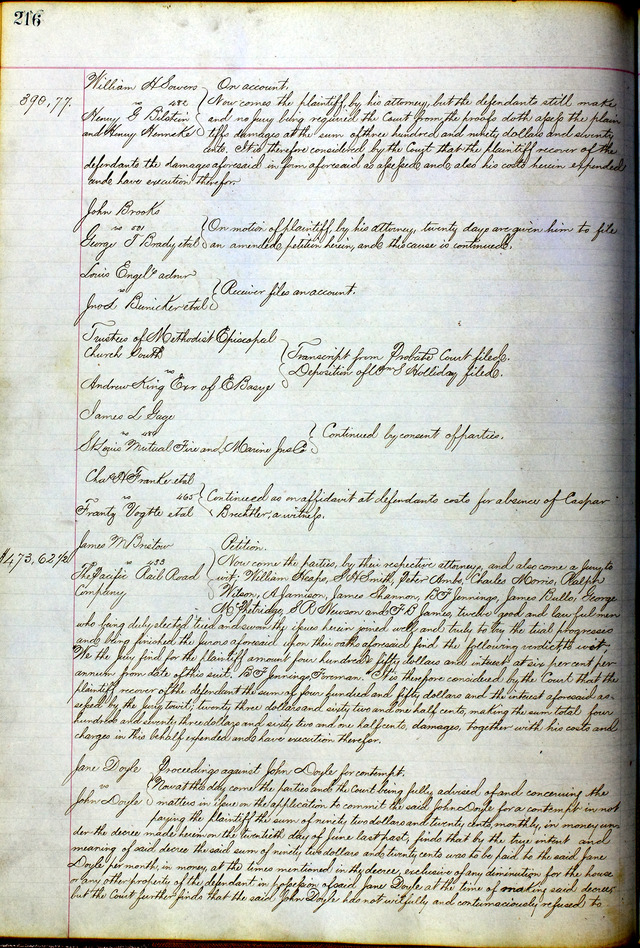 216
William H Sowers On account.
390,77. vs 482 Now comes the plaintiff, by his attorney, but the defendant still make
Henry G Bilstein and no jury being required the Court from the proofs doth assess the plain
and Henry Henneke tiffs damages at the sum of three hundred and ninety dollars and seventy
cents. It is therefore considered by the Court that the plaintiff recover of the
defendants the damages aforesaid in form aforesaid as assessed and also his costs herein expended
and have execution therefor.
John Brooks
vs 501 On motion of plaintiff, by his attorney, twenty days are given him to file
George T Brady etal an amended petition herein, and this cause is continued.
Louis Engel admr
vs Receiver files an account.
Jno Bunicker etal
Trustees of Methodist Episcopal
Church South Transcript from Probate Court filed.
vs Deposition of Wm S Holliday filed.
Andrew King Exr of E Basye
James L Gage
vs Continued by consent of parties.
St Louis Mutual Fire and Marine Ins Co
Chas H Franke etal
vs 465 Continued as on affidavit at defendants costs for absence of Caspar
Frantz Vogtle etal Brechtler, a witness.
James M Bristow Petition.
$473,62½ vs 433 Now come the parties, by their respective attorneys, and also come a jury to
The Pacific Rail Road wit: William Heaps, S H Smith, Peter Ambs, Charles Morris, Ralph
Company Wilson, A Jamison, James Shannon, B F Jennings, James Bulla, George
McGetridge, S R Newson and F B James, twelve good and lawful men
who being duly elected tried and sworn the issues herein joined well and truly to try the trial progresses
and being finished the jurors aforesaid upon their oaths aforesaid find the following verdict to wit:
We the Jury find for the plaintiff amount four hundred & fifty dollars and interest at six per cent per
annum from date of this suit. B F Jennings Foreman. It is therefore considered by the Court that the
plaintiff recover of the defendant the sum of four hundred and fifty dollars and the interest aforesaid as-
sessed by the Jury to wit: twenty three dollars and sixty two and one half cents, making the sum total four
hundred and seventy three dollars and sixty two and one half cents, damages, together with his costs and
charges in this behalf expended and have execution therefor.
Jane Doyle Proceedings against John Doyle for contempt.
vs Now at this day come the parties and the Court being fully advised of and concerning the
John Doyle matters in issue on the application to commit the said John Doyle for a contempt in not
paying the plaintiff the sum of ninety two dollars and twenty cents, monthly, in money un-
der the decree made herein on the twentieth day of June last past, finds that by the true intent and
meaning of said decree the said sum of ninety two dollars and twenty cents was to be paid to the said Jane
Doyle per month, in money, at the times mentioned in the decree, exclusive of any diminution for the house
or any other property of the defendant in possession of said Jane Doyle at the time of making said decree,
but the Court further finds that the said John Doyle has not wilfully and contumaciously refused to